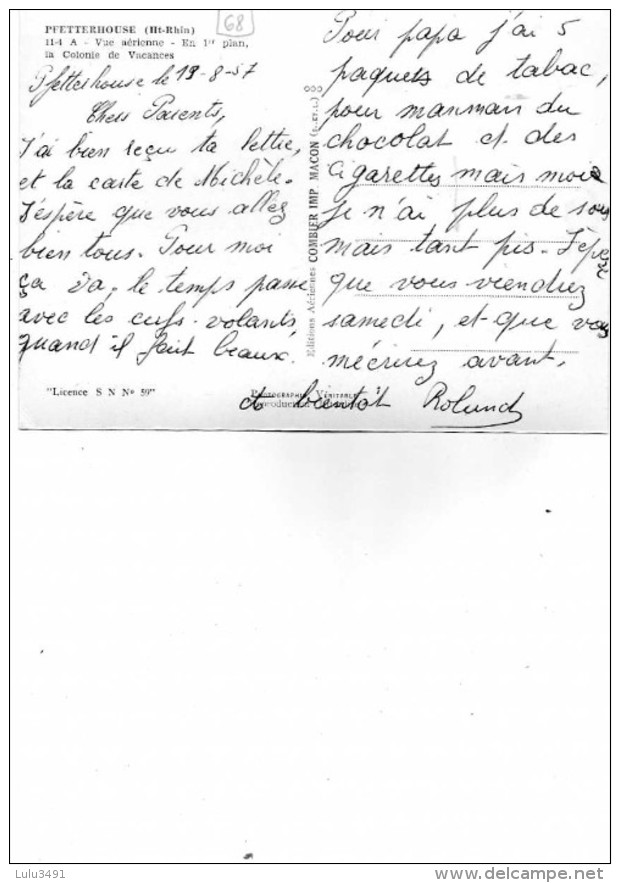 PFETTERHOUSE (Ht-Rhin)
11-4 A - Vue aérienne - En 1er plan,
la Colonie de Vacances
68
Pfetterhouse le 19-8-57
Chers Parents,
J'ai bien reçu ta lettre,
et la carte de Michèle.
J'espère que vous allez
bien tous. Pour moi
ça va. le temps passe
avec les cerfs-volants,
quand il fait beaux.
"Licence S N N° 59"
Editions Aériennes COMBIER IMP. MACON
Pour papa j'ai 5
paquets de tabac,
pour manman du
chocolat et des
cigarettes mais moi
je n'ai plus de sous
mais tant pis. J'épere
que vous viendrez
samedi, et que vous
mécrirez avant.
PHOTOGRAPHIE VÉRITABLE
Reproduction
à bientôt Roland
Lulu3491
www.delcampe.net